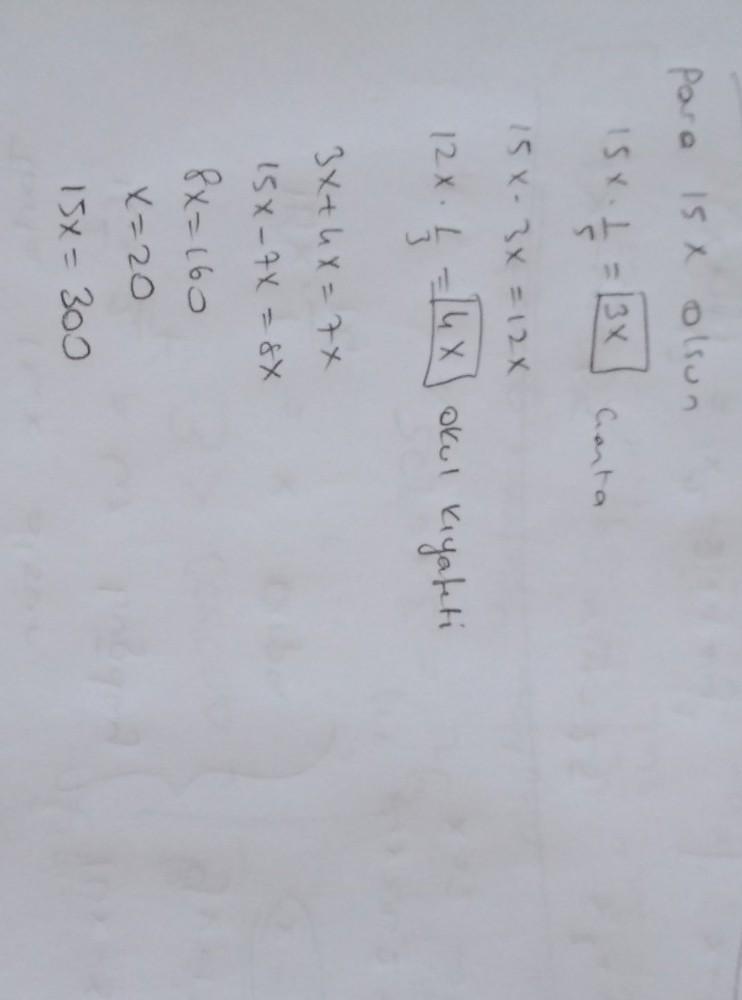 Para 15x olsun
15x · 1/5 = 3x çanta
15x - 3x = 12x
12x · 1/3 = 4x okul kıyafeti
3x + 4x = 7x
15x - 7x = 8x
8x = 160
x = 20
15x = 300